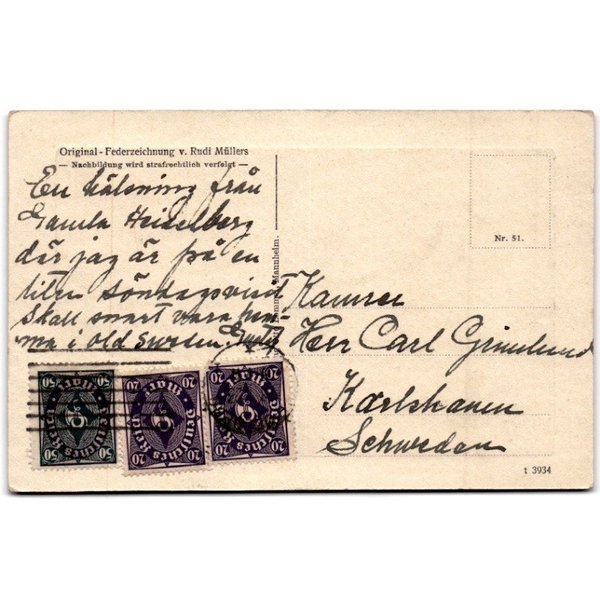 Original - Federzeichnung v. Rudi Müllers
— Nachbildung wird strafrechtlich verfolgt —
En hälsning från
Gamla Heidelberg
där jag är på en
liten söndagsvisit
Skall snart vara hem
ma i old Sweden.
Nr. 51.
Mannheim.
Kamrer
Herr Carl Grimlund
Karlshamn
Schweden
50 Mark 50
Deutsches Reich
20 Mark 20
Deutsches Reich
20 Mark 20
Deutsches Reich
t 3934